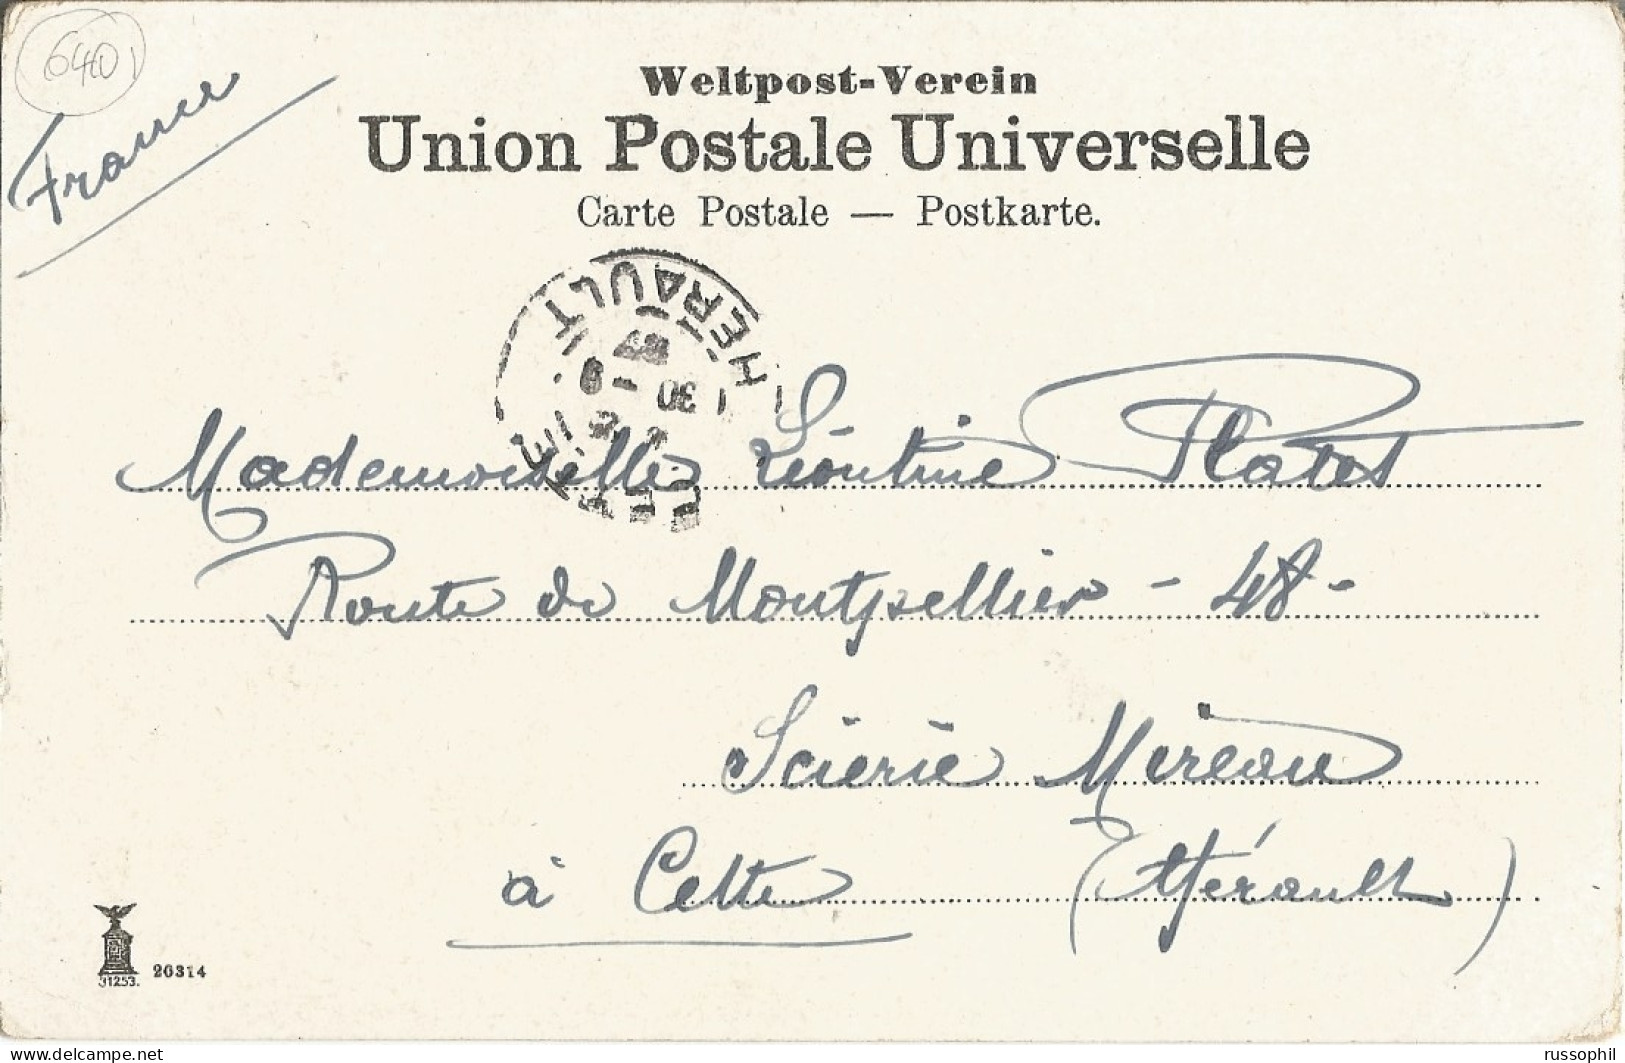 6401
France
Weltpost-Verein
Union Postale Universelle
Carte Postale — Postkarte.
CETTE
HÉRAULT
30
Mademoiselle Léontine Platet
Route de Montpellier - 48 -
Scierie Mireau
à Cette (Hérault)
31253.
20314
www.delcampe.net
russophil